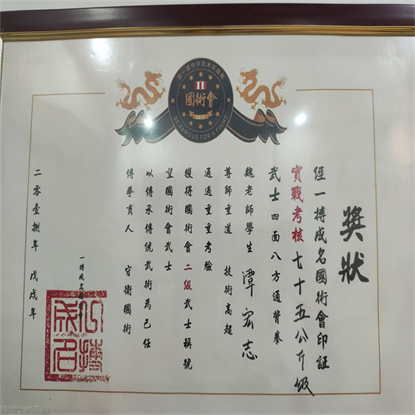 國術會
BE FAMOUS FOR A FIGHT
獎狀
經一搏成名國術會印証
實戰考核七十五公斤級
武士四面八方通背拳
魏老師學生 潭宏志
尊師重道 技術高超
通過重重考驗
獲得國術會二級武士稱號
望國術會武士
以傳承傳統武術為己任
傳學育人 守衛國術
一搏成名
二零壹捌年 戊戌年